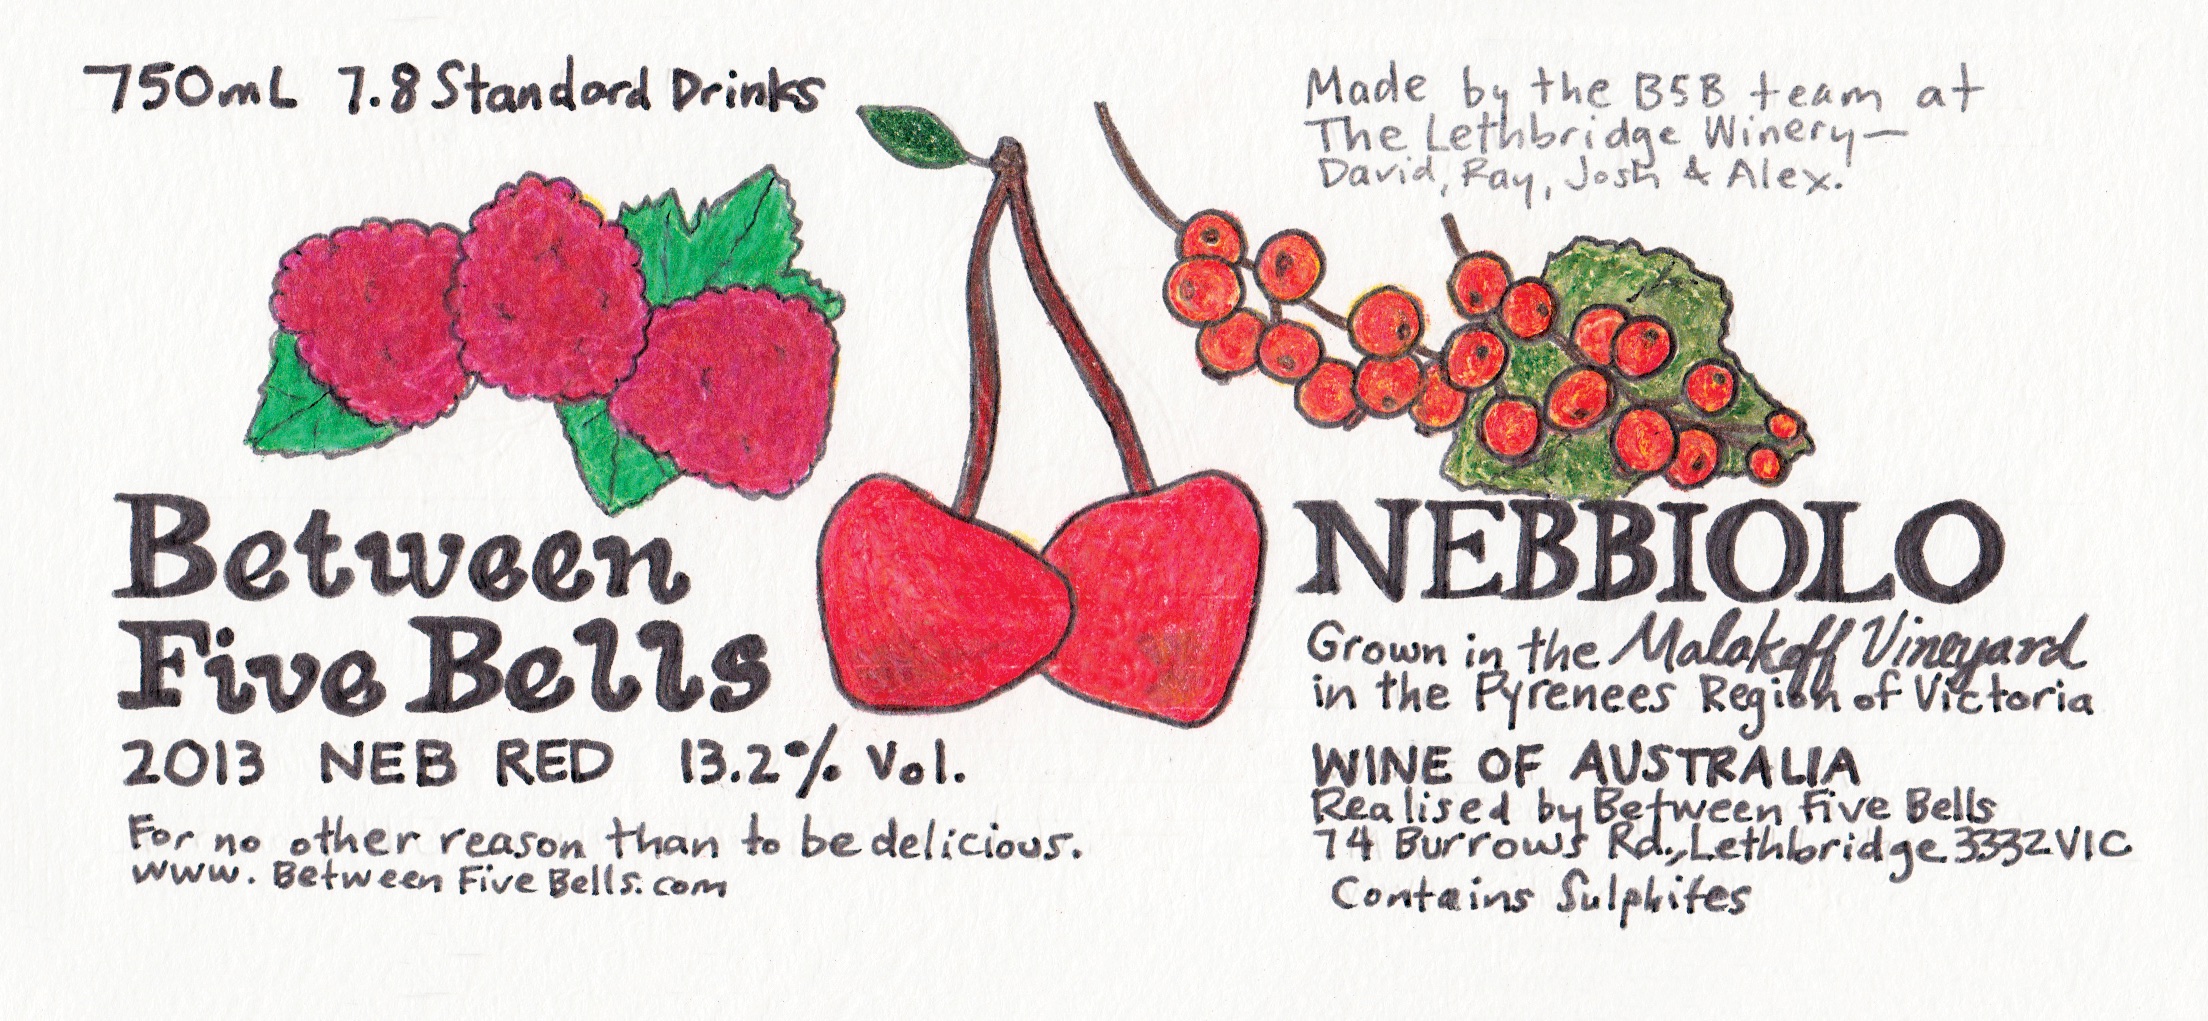 750mL 7.8 Standard Drinks
Made by the B5B team at
The Lethbridge Winery—
David, Ray, Josh & Alex.
Between
Five Bells
2013 NEB RED 13.2% Vol.
For no other reason than to be delicious.
www.BetweenFiveBells.com
NEBBIOLO
Grown in the Malakoff Vineyard
in the Pyrenees Region of Victoria
WINE OF AUSTRALIA
Realised by Between Five Bells
74 Burrows Rd., Lethbridge 3332 VIC
Contains Sulphites